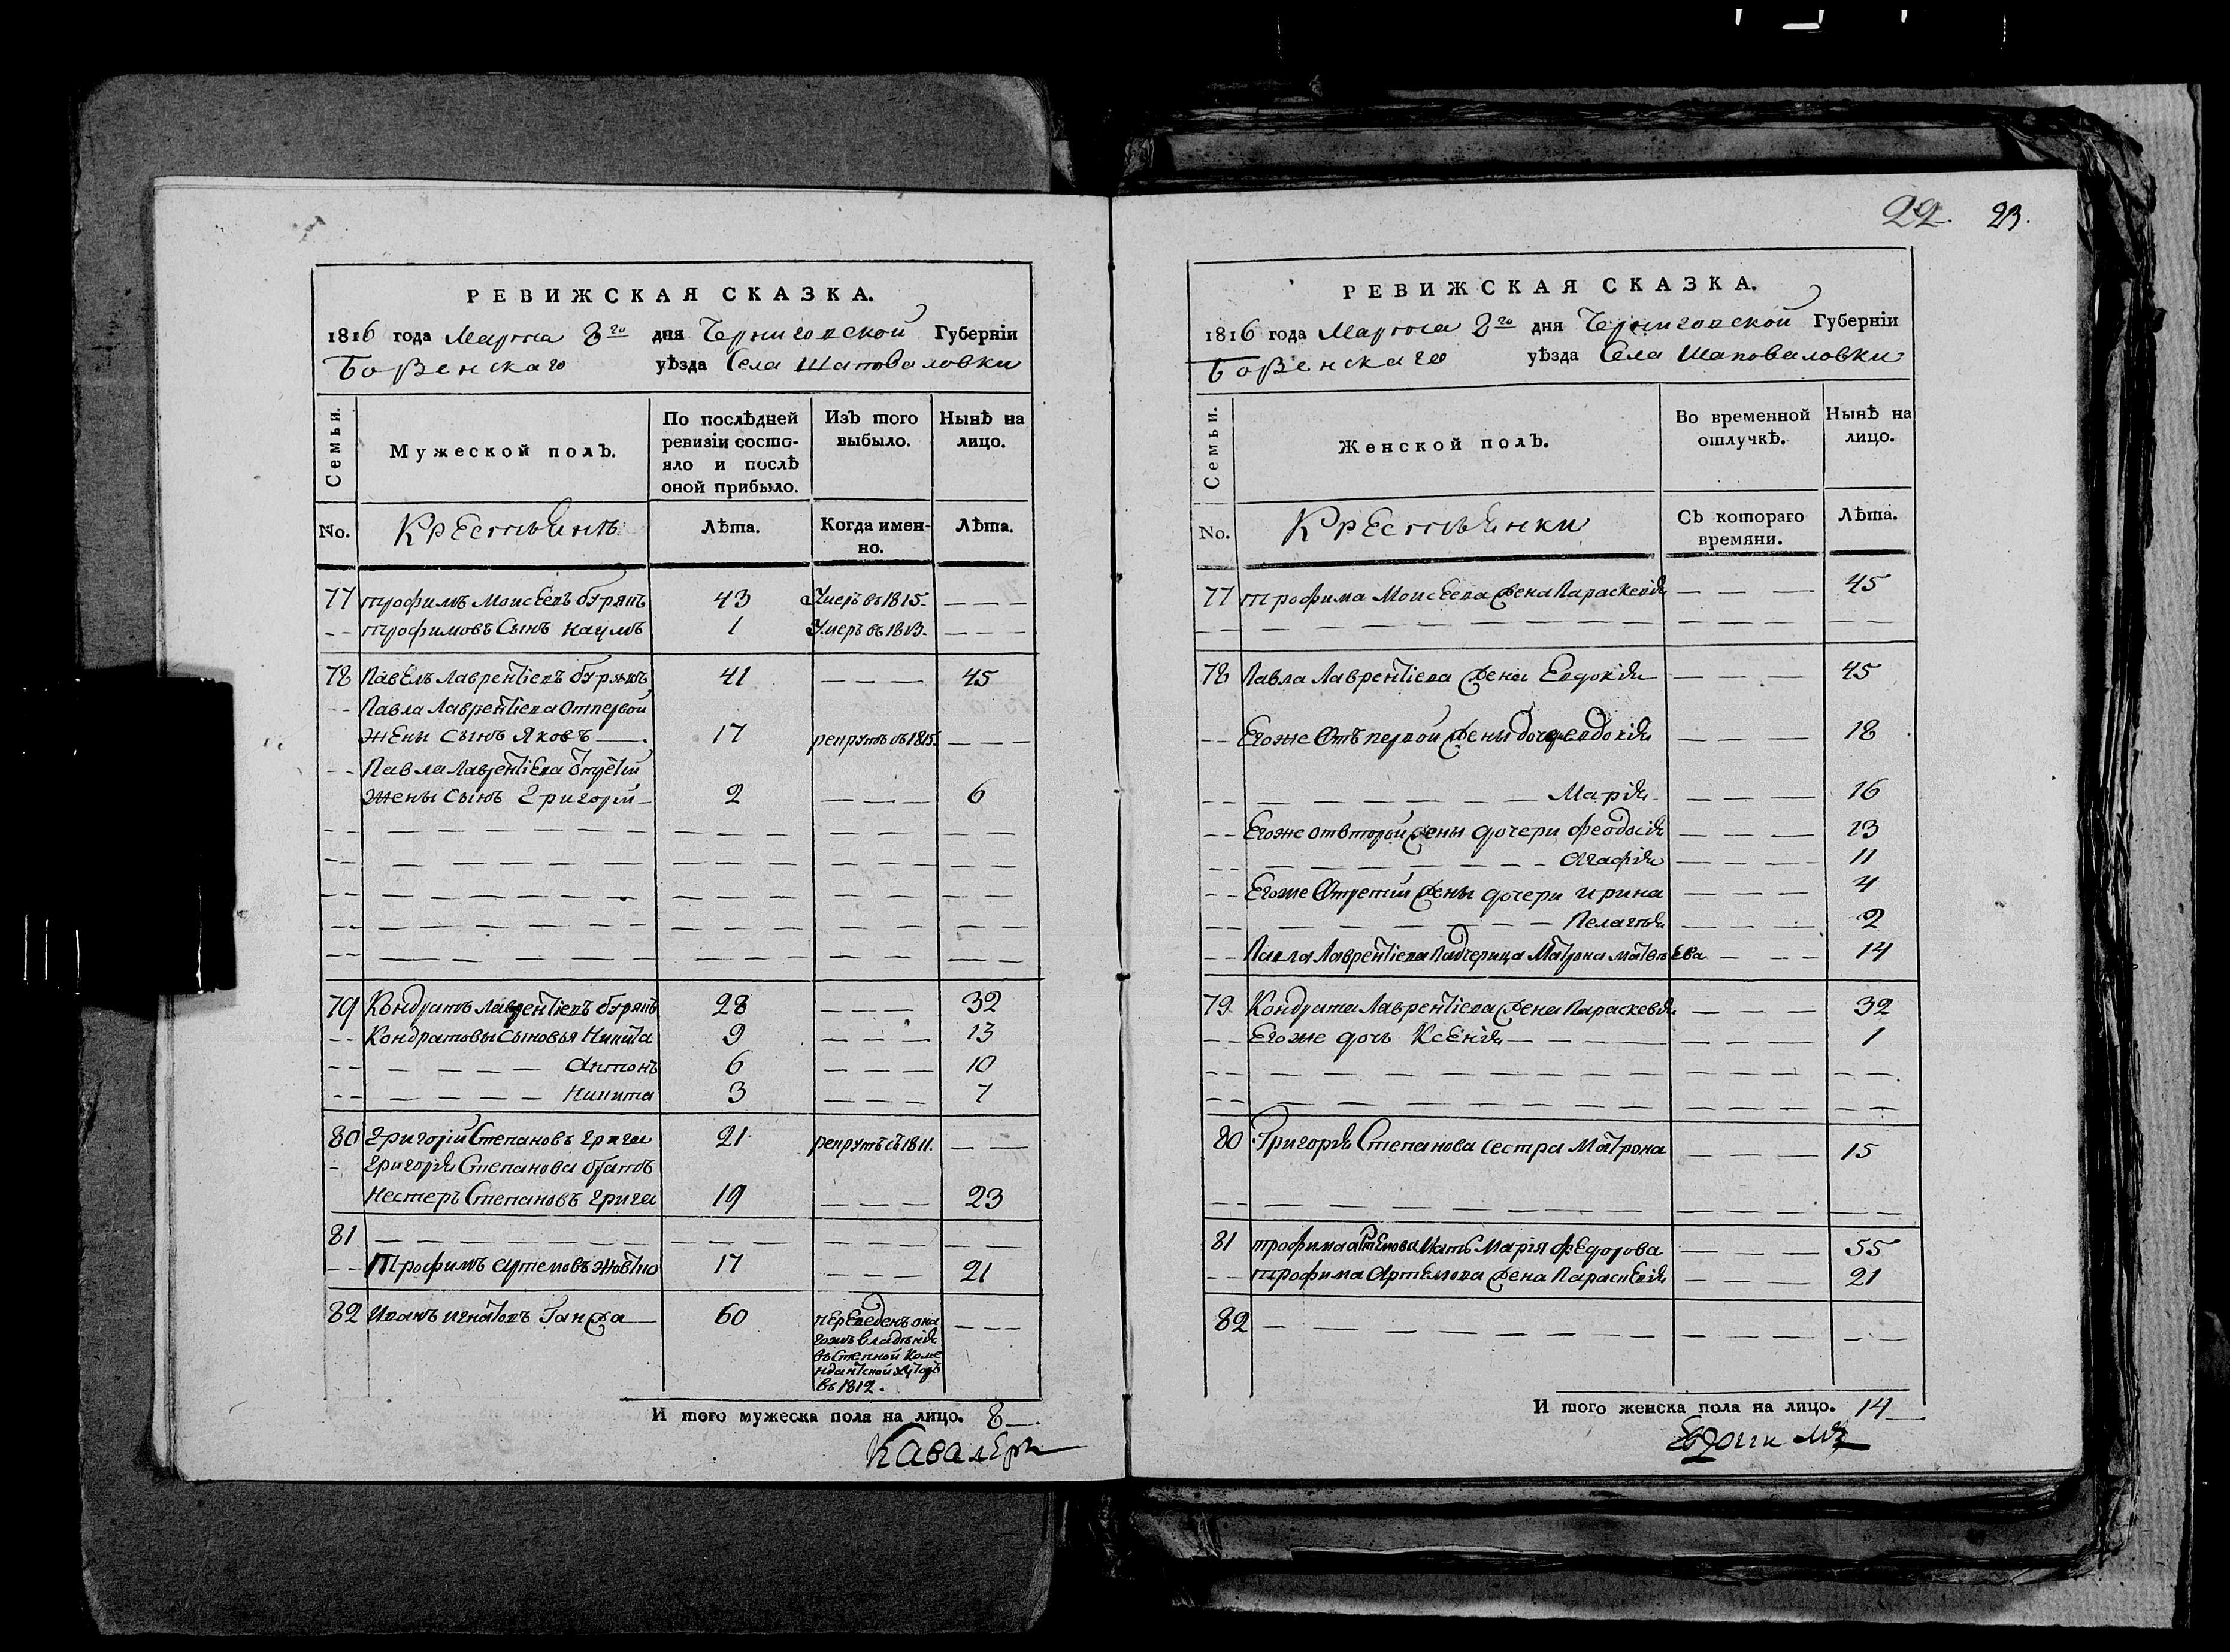 РЕВИЖСКАЯ СКАЗКА.
1816 года Марта 8го дня Черниговской Губерніи
Борзенскаго уѣзда Села Шаповаловки
Семьи.
Мужеской полъ.
По послѣдней ревизіи состояло и послѣ оной прибыло.
Изъ того выбыло.
Нынѣ на лицо.
No.
Лѣта.
Когда именно.
Лѣта.
77 Трофимъ Моисеевъ 43 Умеръ въ 1815. — — —
Трофимовъ Сынъ Наумъ 1 Умеръ въ 1813. — — —
78 Павелъ Лаврентіевъ 41 — — — 45
Павла Лаврентіева Отпервой
Жены Сынъ Яковъ — 17 рекрутъ въ 1815. — — —
Павла Лаврентіева Отретій
Жены Сынъ Григорій — 2 — — — 6
79 Кондратъ Лаврентіевъ 28 — — — 32
Кондратовы Сыновья Никита 9 — — — 13
Антонъ 6 — — — 10
Никита 3 — — — 7
80 Григорій Степановъ Грига 21 рекрутъ съ 1811. — —
Григорія Степанова братъ
Нестеръ Степановъ Грига 19 — — — 23
81
Трофимъ Артемовъ 17 — — — 21
82 Иванъ Игнатовъ Ганжа — 60 переведенъ она
гожъ владѣнія
въ Степной Коме
ндантской хуторъ
въ 1812. — — —
И того мужеска пола на лицо. 8 —
Кавалеръ
22. 23.
РЕВИЖСКАЯ СКАЗКА.
1816 года Марта 8го дня Черниговской Губерніи
Борзенскаго уѣзда Села Шаповаловки
Семьи.
Женской полъ.
Во временной отлучкѣ.
Нынѣ на лицо.
No.
Крестьянки
Съ котораго времяни.
Лѣта.
77 Трофима Моисеева жена Параскевія — — — 45
78 Павла Лаврентіева жена Евдокія — — — — 45
Егоже Отъ первой жены дочери Евдокія — — — 18
Марія — — — 16
Егоже отвторой жены дочери Феодосія — — — 13
Агафія — — — 11
Егоже Отретій жены дочери Ирина — — — 4
Пелагія — — — 2
Павла Лаврентіева Падчерица Матрона Матвѣева — — — 14
79 Кондрата Лаврентіева жена Параскевія — — — 32
Егоже дочь Ксенія — — — 1
80 Григорія Степанова сестра Матрона — — — 15
81 Трофима Артемова Мать Марія Федорова — — — 55
Трофима Артемова жена Параскевія — — — 21
82
И того женска пола на лицо. 14 —